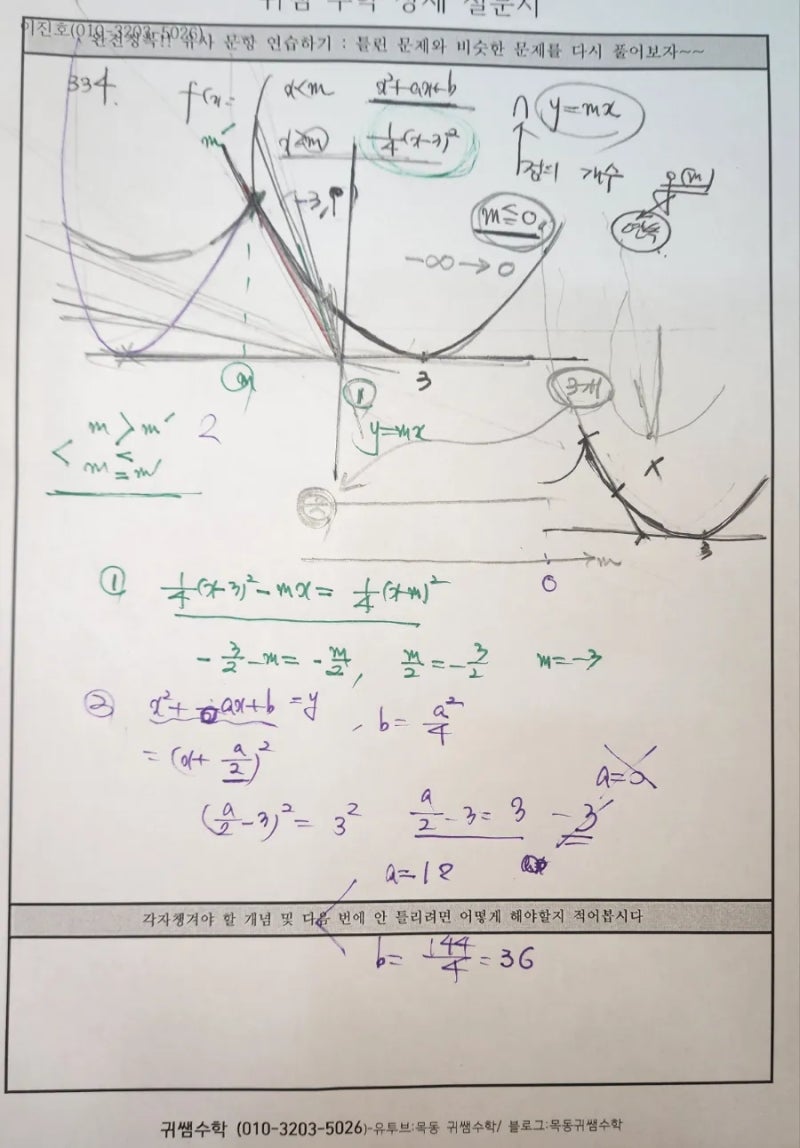 귀쌤 수학 경제 질문지
이진호(010-3203-5026)
완전정복!! 유사 문항 연습하기 : 틀린 문제와 비슷한 문제를 다시 풀어보자~~
334.
f(x=
x<m x²+ax+b
x≥m 1/4(x-3)²
∩ y=mx
점의 개수
g(m)
연속
m'
-3, 9
m≤0
-∞→0
m
①
3
y=mx
3개
m>m' 2
m≤m'
x
3
m
0
① 1/4(x-3)²-mx= 1/4(x+m)²
-3/2-m=-m/2, m/2=-3/2 m=-3
② x²+ax+b=y , b= a²/4
=(x+a/2)²
(a/2-3)²= 3² a/2-3= 3 -3
a=0
a=18
각자챙겨야 할 개념 및 다음 번에 안 틀리려면 어떻게 해야할지 적어봅시다
b= 144/4=36
귀쌤수학 (010-3203-5026)-유투브:목동 귀쌤수학/ 블로그:목동귀쌤수학